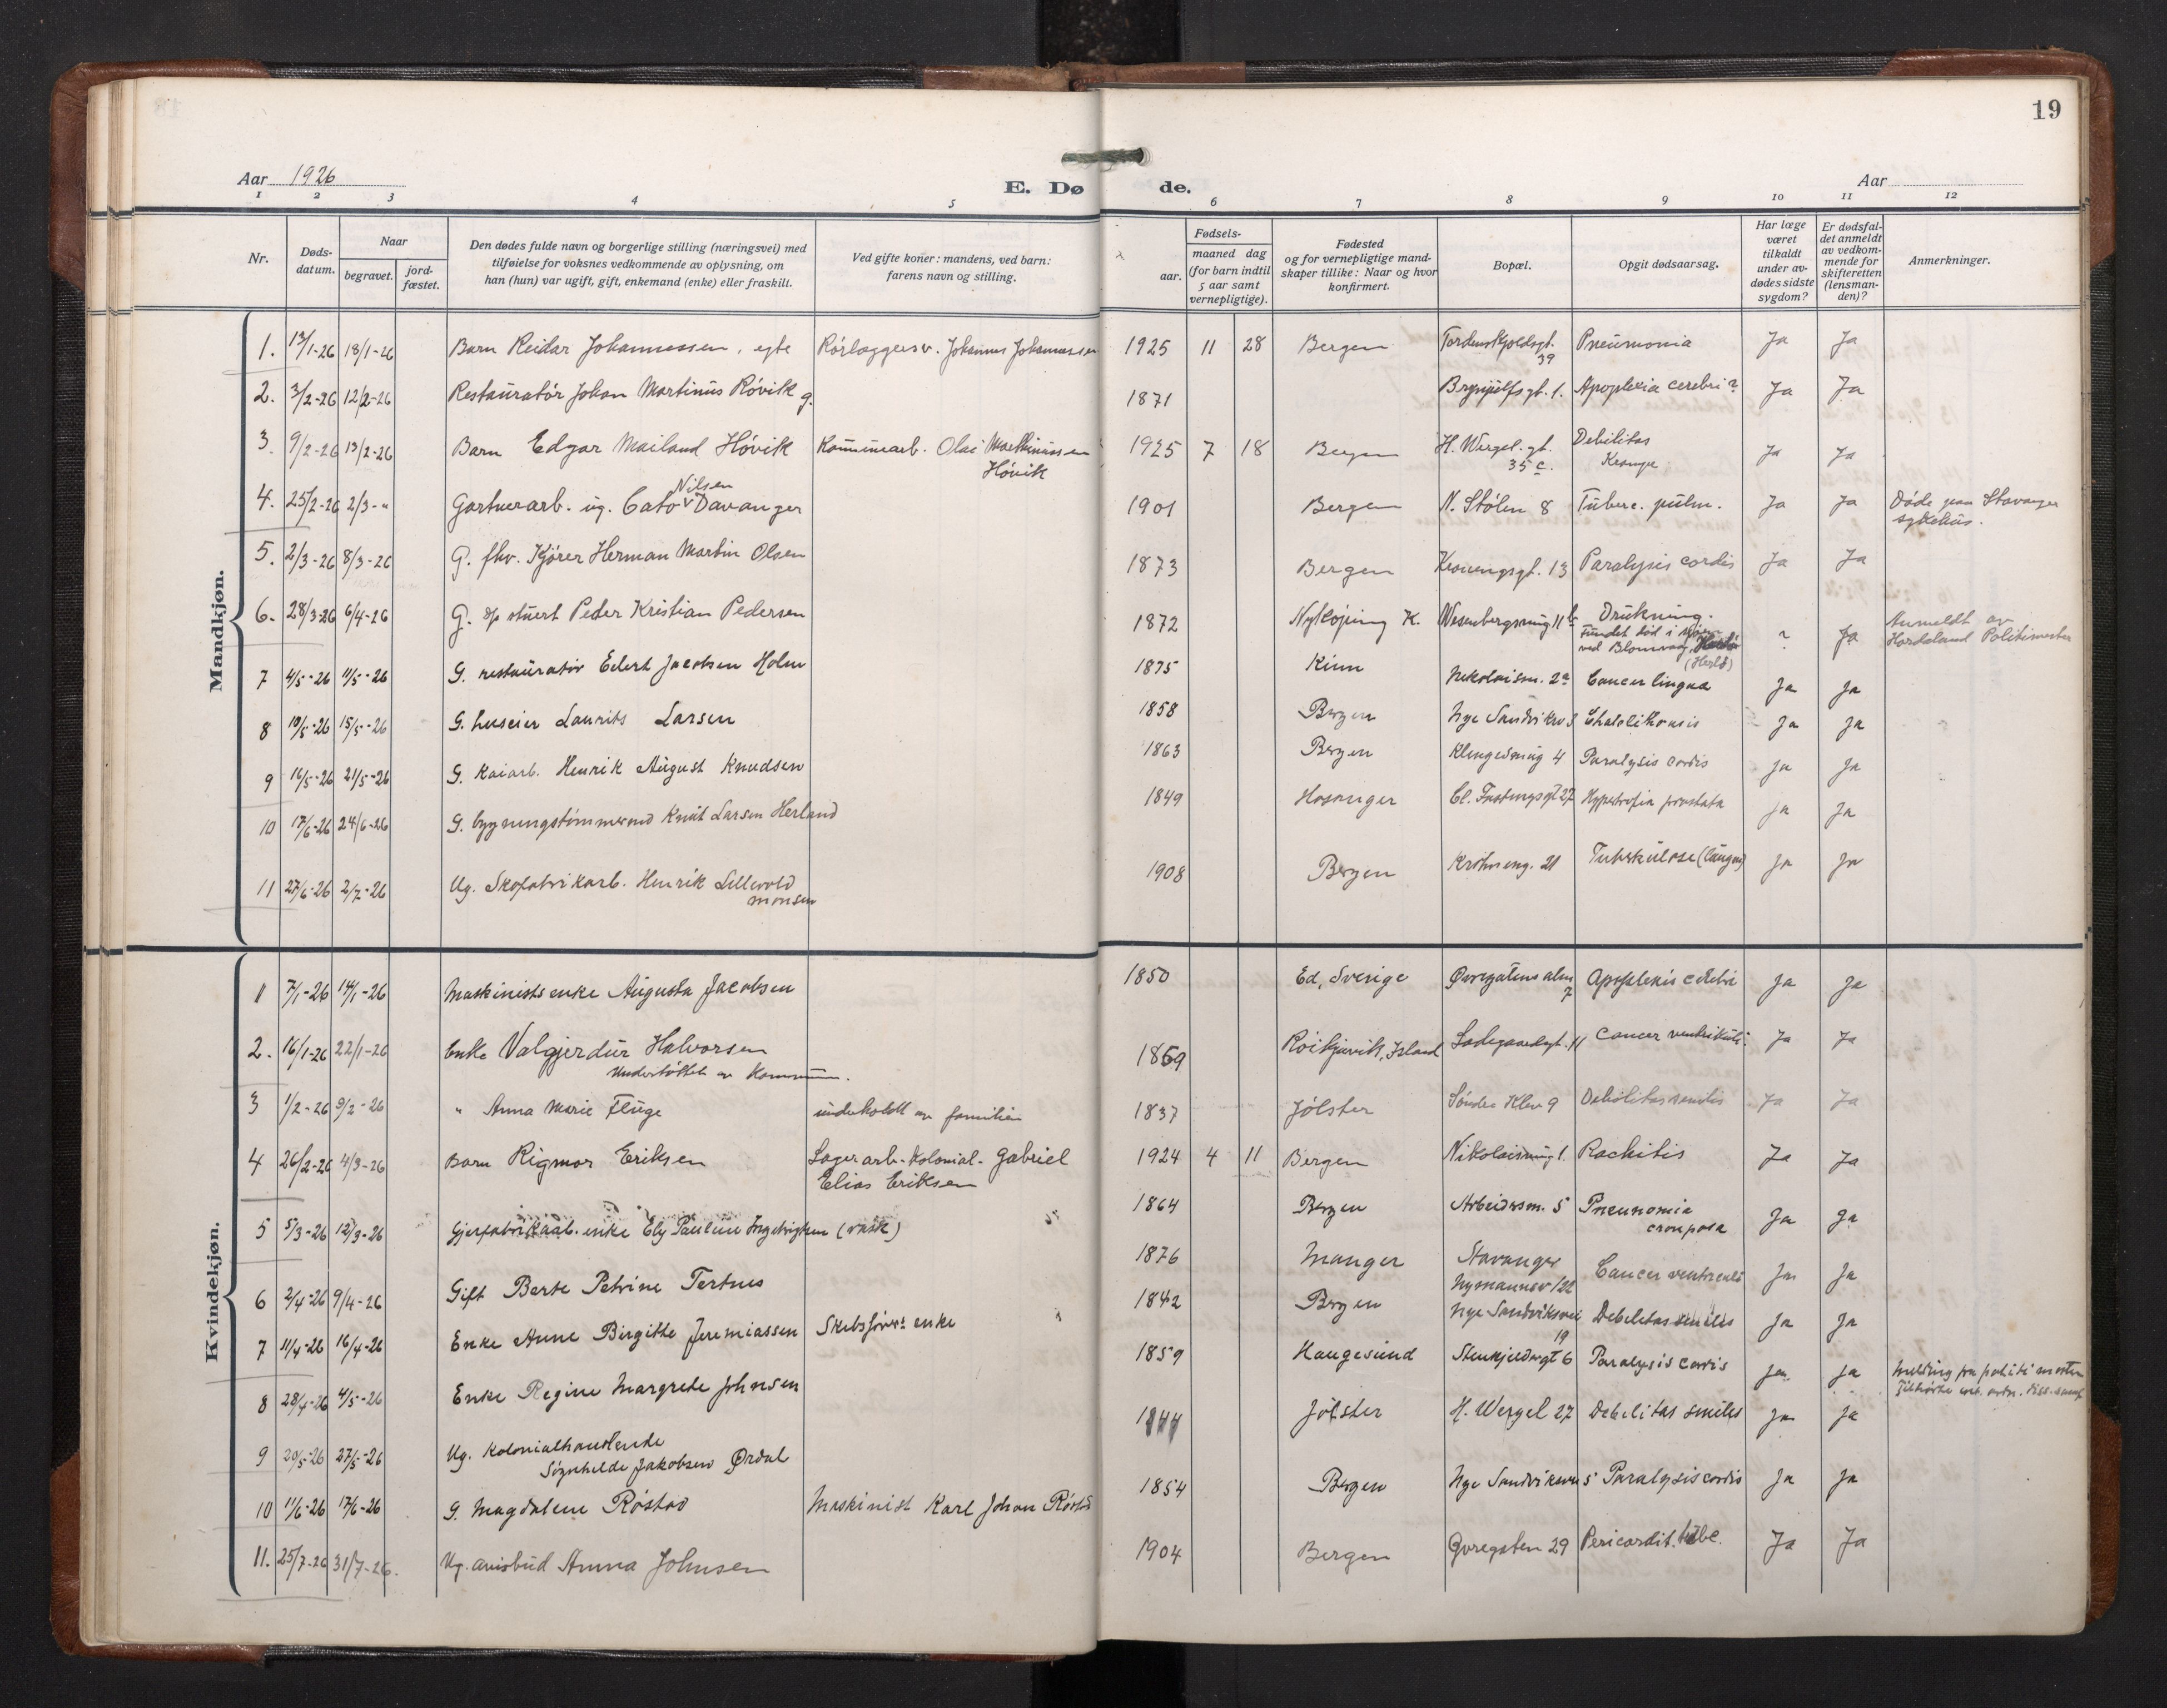 19
Aar 1926
E. Dø de.
Aar
1 2 3 4 5 6 7 8 9 10 11 12
Nr.
Døds-
datum.
Naar
begravet.
jord-
fæstet.
Den dødes fulde navn og borgerlige stilling (næringsvei) med
tilføielse for voksnes vedkommende av oplysning, om
han (hun) var ugift, gift, enkemand (enke) eller fraskilt.
Ved gifte koner: mandens, ved barn:
farens navn og stilling.
Fødsels-
aar.
maaned dag
(for barn indtil
5 aar samt
vernepligtige).
Fødested
og for vernepligtige mand-
skaper tillike: Naar og hvor
konfirmert.
Bopæl.
Opgit dødsaarsag.
Har læge
været
tilkaldt
under av-
dødes sidste
sygdom?
Er dødsfal-
det anmeldt
av vedkom-
mende for
skifteretten
(lensman-
den)?
Anmerkninger.
Mandkjøn.
1. 13/1-26 18/1-26 Barn Reidar Johannessen, egte Rörlæggersv. Johannes Johannessen 1925 11 28 Bergen Tordenskjoldsgt. 39 Pneumonia Ja Ja
2. 3/2-26 12/2-26 Restauratør Johan Martinus Rövik g. 1871 Brynjulfsgt. 1. Apoplexia cerebri ? Ja Ja
3. 9/2-26 13/2-26 Barn Edgar Mailand Hövik Kommunearb. Olai Mathinussen Hövik 1925 7 18 Bergen H. Wergel. gt. 35 c. Debilitas Krampe Ja Ja
4. 25/2-26 2/3-" Gartnerarb. ug. Cato Nilsen Davanger 1901 Bergen N. Stölen 8 Tuberc. pulm. Ja Ja Döde paa Stavanger sykehus.
5. 2/3-26 8/3-26 G. fhv. Kjörer Herman Martin Olsen 1873 Bergen Kronengsgt. 13 Paralysis cordis Ja Ja
6. 28/3-26 6/4-26 G. stuert Peder Kristian Pedersen 1872 Nykjöping K. Wesenbergsmug 11 b Drukning. Fundet död i sjöen ved Blomvaag (Herlö) ? Ja Anmeldt av Hordaland Politimester
7 4/5-26 11/5-26 G. restauratør Edert Jacobsen Holm 1875 Kinn Nikolaism. 2a Cancer lingua Ja Ja
8 10/5-26 15/5-26 G. huseier Laurits Larsen 1858 Bergen Nye Sandvikv 3 Ja Ja
9 16/5-26 21/5-26 G. Kaiarb. Henrik August Knudsen 1863 Bergen Klingesmug 4 Paralysis cordis Ja Ja
10 17/6-26 24/6-26 G. bygningstømmermd Knut Larsen Herland 1849 Hosanger Cl. Fastingsgt 27 Hypertrofia prostata Ja Ja
11 27/6-26 2/7-26 Ug. Skofabrikarb. Henrik Lillevold Monsen 1908 Bergen Krohneng. 21 Tuberkulose (lunger) Ja Ja
Kvindekjøn.
1 7/1-26 14/1-26 Maskinists enke Augusta Jacobsen 1850 Ed, Sverige Øvregatens alm 7 Apoplexis cerebri Ja Ja
2. 16/1-26 22/1-26 Enke Valgjerdur Halvorsen Understöttet av Kommunen. 1859 Reikjavik, Island Ladegaardsgt. 11 Cancer ventrikuli. Ja Ja
3 1/2-26 9/2-26 " Anna Marie Fluge underholdt av familien 1837 Jölster Söndre Klev 9 Debilitas senilis Ja Ja
4 26/2-26 4/3-26 Barn Rigmor Eriksen Lagerarb. Kolonial- Gabriel Elias Eriksen 1924 4 11 Bergen Nikolaismug 1. Rachitis Ja Ja
5 5/3-26 12/3-26 Gjærfabrikaarb. enke Ely Pauline Ingebrigtsen (vask) 1864 Bergen Arbeidersm. 5 Pneunomia crouposa Ja Ja
6 2/4-26 9/4-26 Gift Berte Petrine Tertnes 1876 Manger Stavanger Nymannsv 122 Cancer ventriculi Ja Ja
7 11/4-26 16/4-26 Enke Anne Birgitte Jeremiassen Skibsförers enke 1842 Bergen Nye Sandviksvei 19 Debilitas senilis Ja Ja
8 28/4-26 4/5-26 Enke Regine Margrete Johnsen 1859 Haugesund Stenkjeldergt 6 Paralysis cordis Ja Ja Melding fra politimesteren Tilhørte diss.samf
9 20/5-26 27/5-26 Ug. Kolonialhandlende Signhilde Jakobsen Ørdal 1844 Jölster H. Wergel 27 Debilitas senilis Ja Ja
10 11/6-26 17/6-26 G. Magdalene Röstad Maskinist Karl Johan Röstad 1854 Bergen Nye Sandviksvei 5 Paralysis cordis Ja Ja
11. 25/7-26 31/7-26. Ug. avisbud Anna Johnsen 1904 Bergen Øvregaten 29 Pericardit. tube. Ja Ja